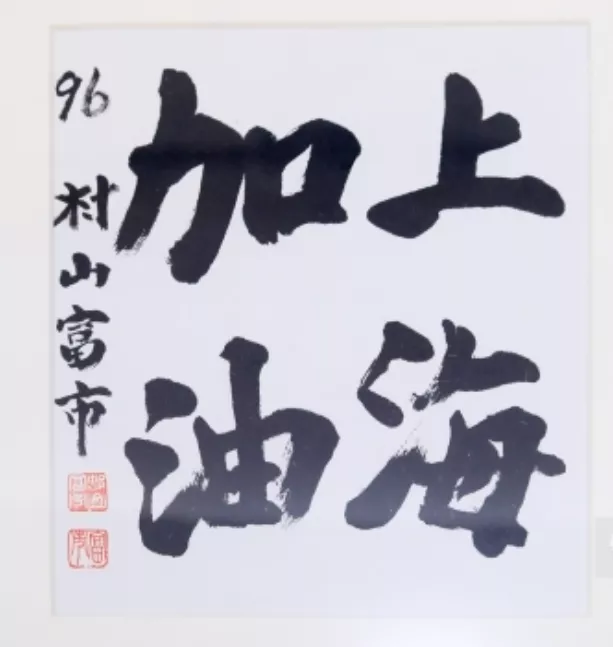 上海
加油
96 村山富市